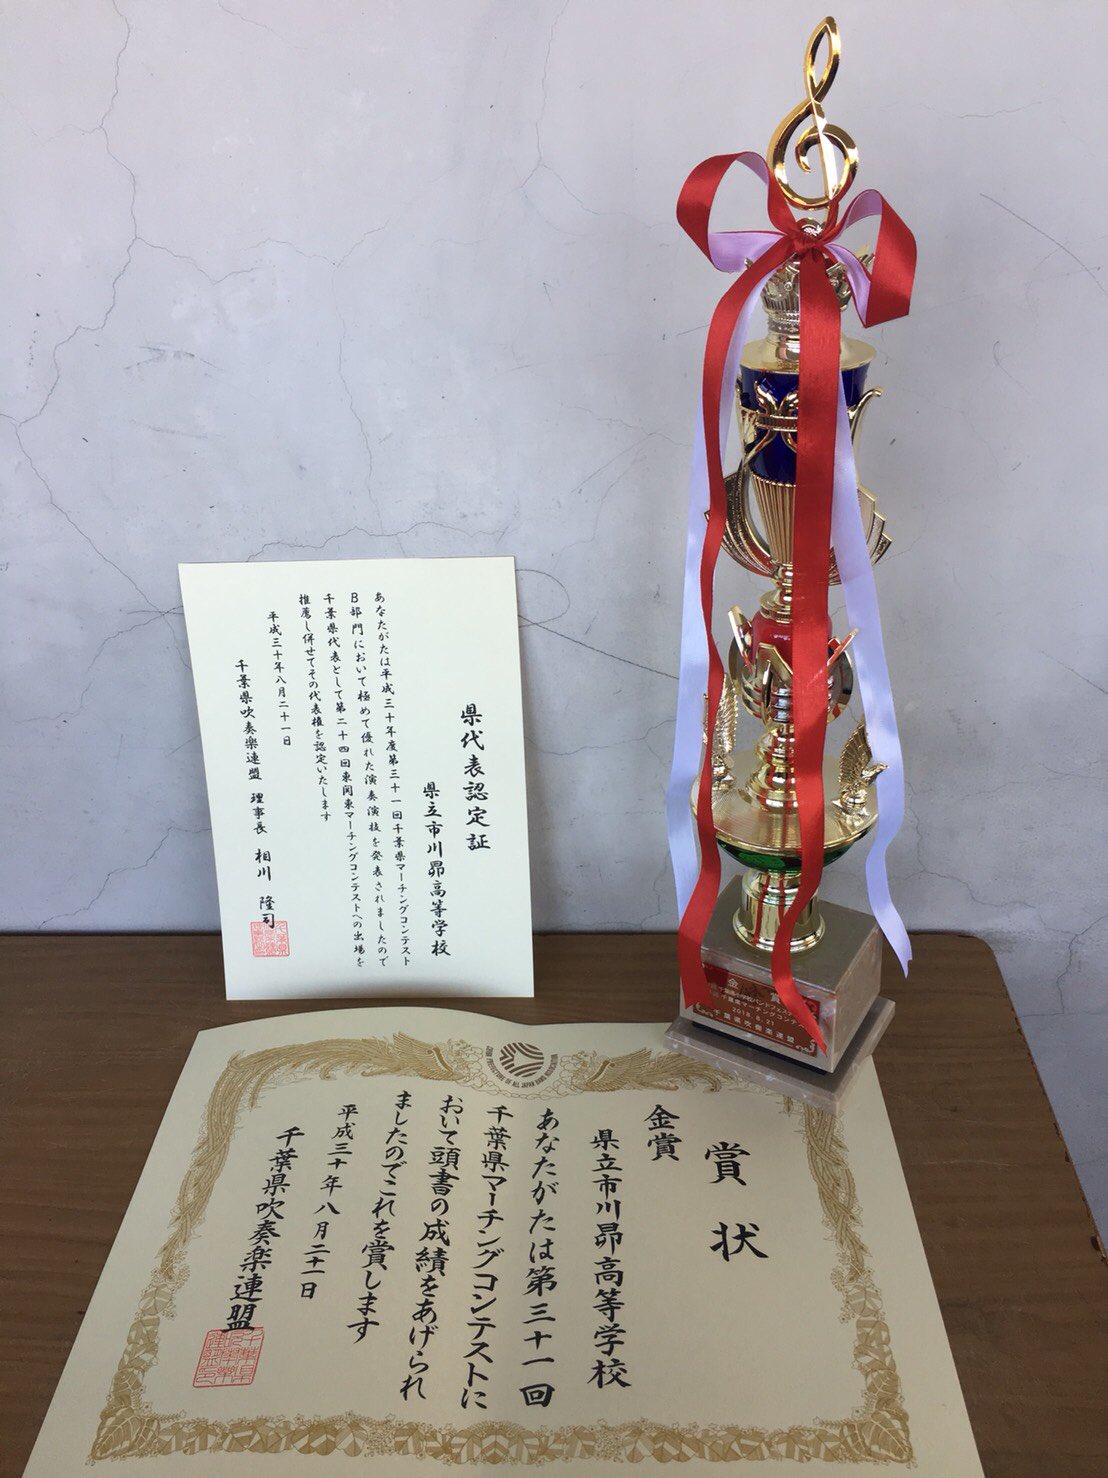 県代表認定証
県立市川昴高等学校
あなたがたは平成三十年度第三十一回千葉県マーチングコンテスト
B部門において極めて優れた演奏演技を発表されましたので
千葉県代表として第二十四回東関東マーチングコンテストへの出場を
推薦し併せてその代表権を認定いたします
平成三十年八月二十一日
千葉県吹奏楽連盟 理事長 相川 隆司
金 賞
千葉県マーチングコンテ
2018.8.21
千葉県吹奏楽連盟
賞状
金賞
県立市川昴高等学校
あなたがたは第三十一回
千葉県マーチングコンテストに
おいて頭書の成績をあげられ
ましたのでこれを賞します
平成三十年八月二十一日
千葉県吹奏楽連盟